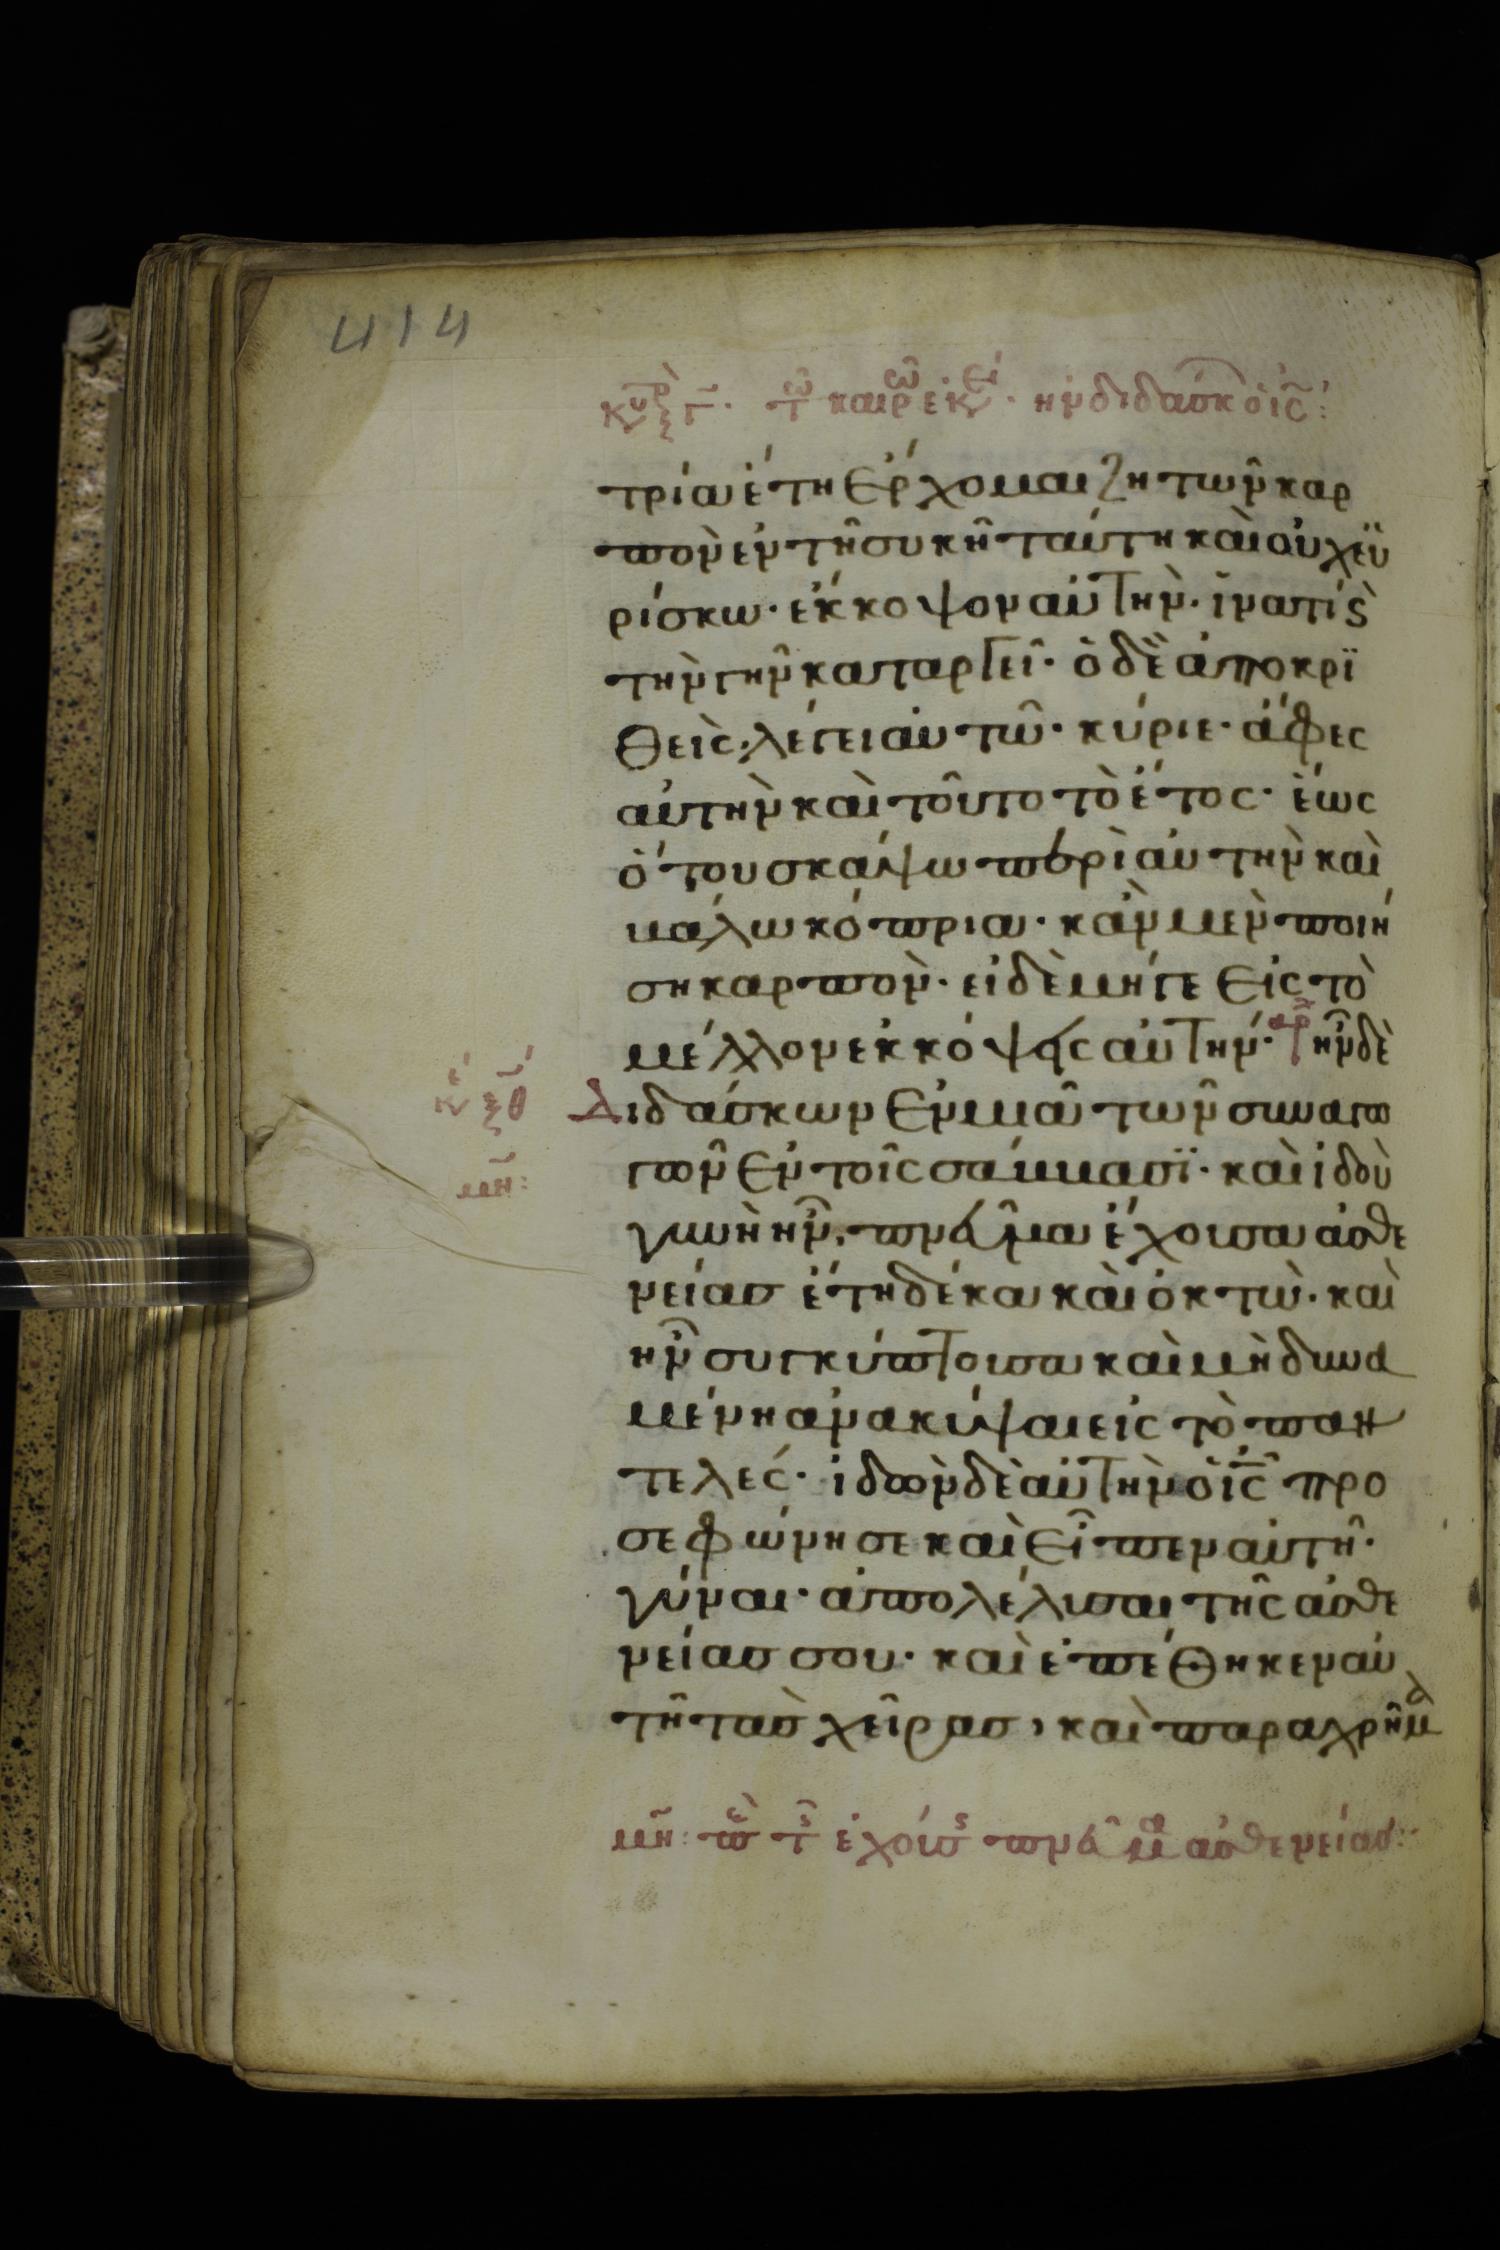 414
τρία ἔτη ἔρχομαι ζητῶν καρ
πὸν ἐν τῆ συκῆ ταύτη καὶ οὐχ εὑ
ρίσκω· ἔκκοψον αὐτὴν· ἵνα τί ς
τὴν γῆν καταργεῖ· ὁ δὲ ἀποκρϊ
θεὶς· λέγει αὐτῶ· κύριε· ἄφες
αὐτὴν καὶ τοῦτο τὸ ἔτος· ἕως
ὅτου σκάψω περὶ αὐτὴν καὶ
βάλω κόπρια· κἂν μὲν ποιή
ση καρπὸν· εἰ δὲ μήγε εἰς τὸ
μέλλον ἐκκόψης αὐτήν· ἦν δὲ
κε ξθ Διδάσκων ἐν μιᾶ τῶν συναγω
μη: γῶν ἐν τοῖς σάββασϊ· καὶ ἰδοὺ
γυνὴ ἦν, πνεῦμα ἔχουσα ἀσθε
νείας ἔτη δέκα καὶ ὀκτὼ· καὶ
ἦν συγκύπτουσα καὶ μὴ δυνα
μένη ἀνακύψαι εἰς τὸ παν
τελές· ἰδὼν δὲ αὐτὴν ὁ ις προ
σεφώνησε καὶ εἶπεν αὐτῆ·
γύναι· ἀπολέλυσαι τῆς ἀσθε
νείας σου· καὶ ἐπέθηκεν αὐ
τῆ τὰς χεῖρας, καὶ παραχρῆμα
μη: πε τ ἐχούσ πνα ἀσθενείας: